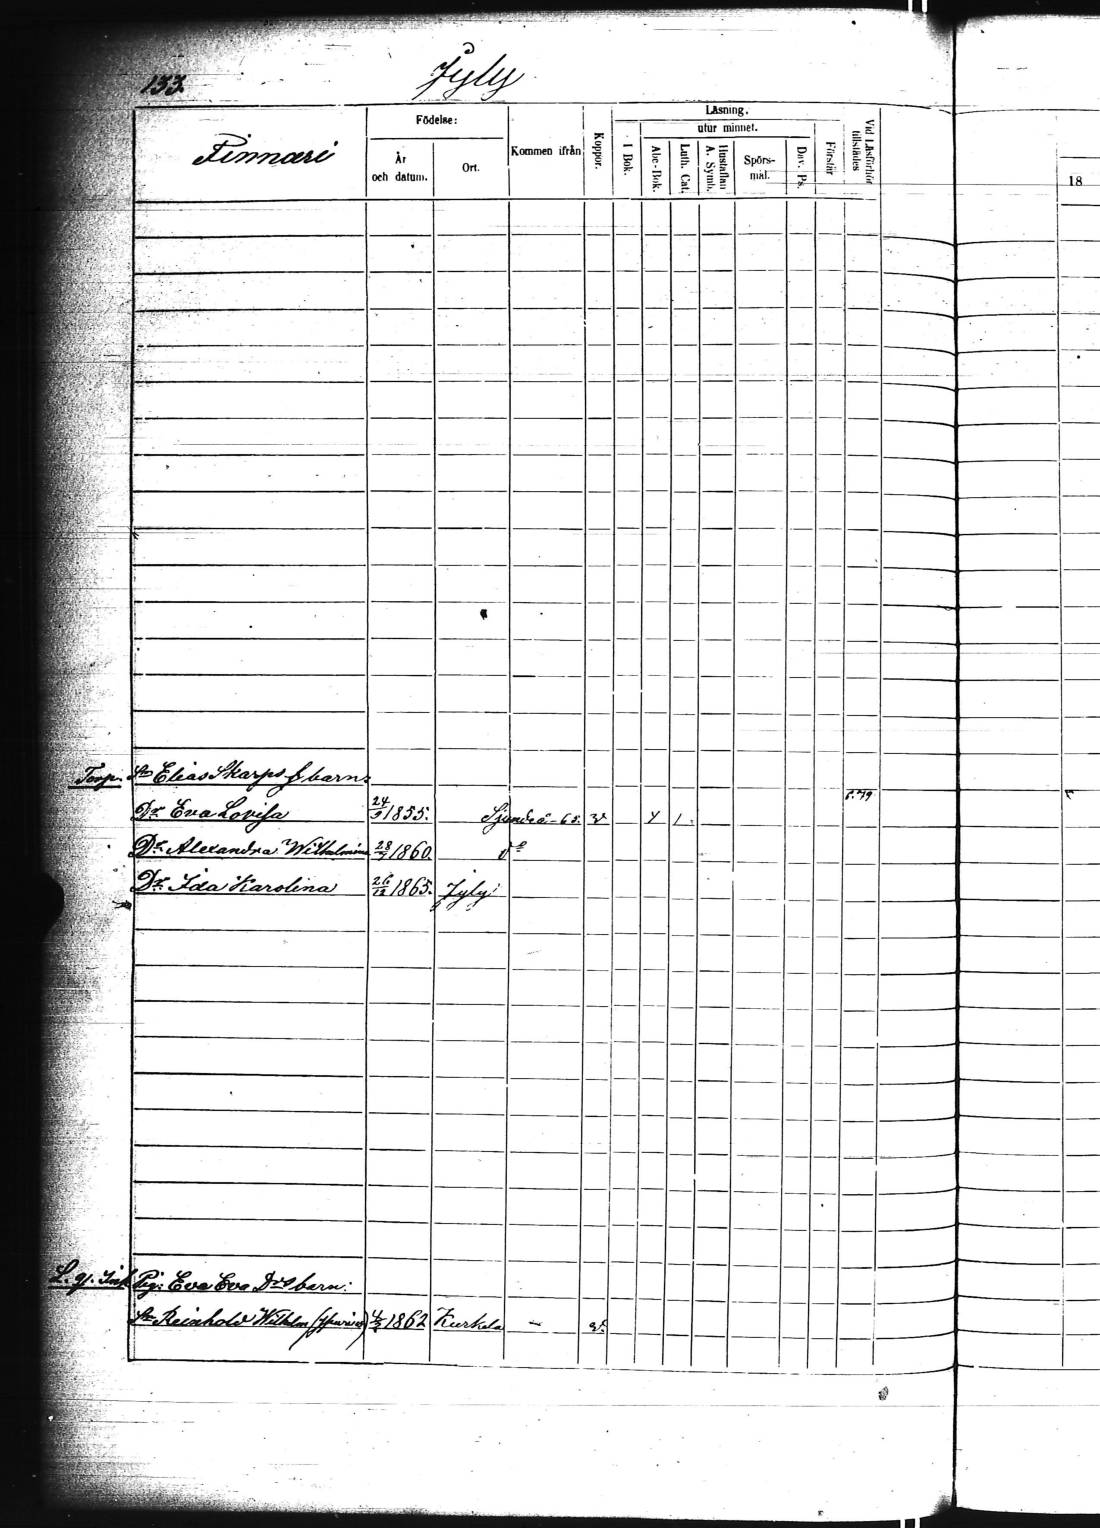 133.
Jyly
Finnari
Födelse:
År
och datum.
Ort.
Kommen ifrån
Koppor.
Läsning.
I Bok.
utur minnet.
Abc-Bok.
Luth. Cat.
Hustaflan
A. Symb.
Spörs-
mål.
Dav. Ps.
Förstår
Vid Läsförhör
tillstädes
18
Torp. Sn Elias Skarps barn:
Dr Eva Lovisa 24/9 1855. Sjundeå - 65. v 1
6.79
Dr Alexandra Wilhelmina 28/7 1860. do
Dr Ida Karolina 26/12 1865. Jyly
Pig: Eva Eva Drs barn:
Sn Reinhold Wilhelm 1862 Kurkela - v.